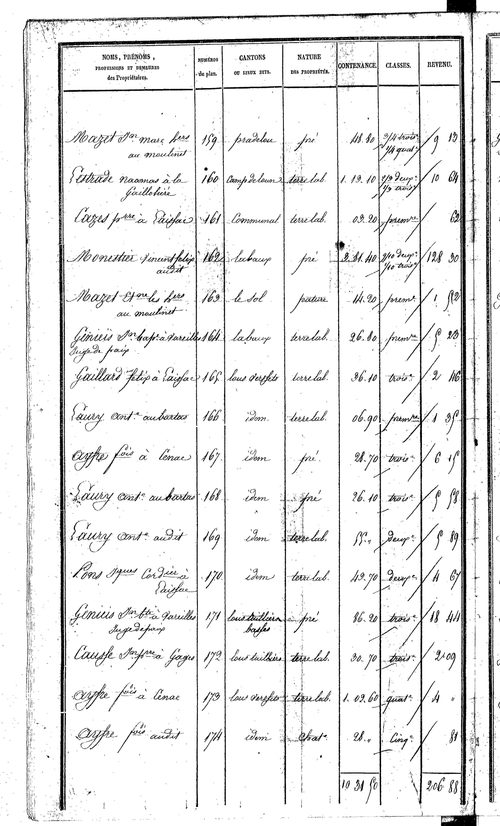 NOMS, PRÉNOMS, PROFESSIONS ET DEMEURES des Propriétaires. | NUMÉROS du plan. | CANTONS OU LIEUX DITS. | NATURE DES PROPRIÉTÉS. | CONTENANCE. | CLASSES. | REVENU.
Mazet Jn marc hers au moulinet 159 pradelou pré 48.80 3/4 trois. 1/4 quat. 9 13
Estrade naamas à la Gaillotière 160 terre lab. 1.19.10 10 64
Cazes pre à Laissac 161 Communal terre lab. 09.20 prem. 62
Monestier vincent felix audit 162 labaux pré 2.81.40 9/10 deux. 1/10 trois 128 30
Mazet Etne les hers au moulinet 163 le sol pature 14.20 prem. 1 52
Geniéis Jn bapt. à vareilles Juge de paix 164 labaux terre lab. 26.80 prem. 5 23
Gaillard felix à Laissac 165 lous versets terre lab. 36.10 trois. 2 46
Laury ant. au bartas 166 idem terre lab. 06.90 prem. 1 35
ayfre fois à Cenac 167 idem pré 28.70 trois. 6 15
Laury ant. au bartas 168 idem pré 26.10 trois. 5 58
Laury ant. audit 169 idem terre lab. 55 „ deux. 5 89
Pons Jques Cordier à Laissac 170 idem terre lab. 43.70 deux. 4 67
Geniéis Jn bte à vareilles Juge de paix 171 basses pré 86.20 trois. 18 44
Causse Jn pre à Gages 172 terre lab. 30.70 trois. 2 09
ayfre fois à Cenac 173 lous versets terre lab. 1.03.60 quat. 4 „
ayfre fois audit 174 idem 28 „ Cinq. 81
10 31 50 206 88